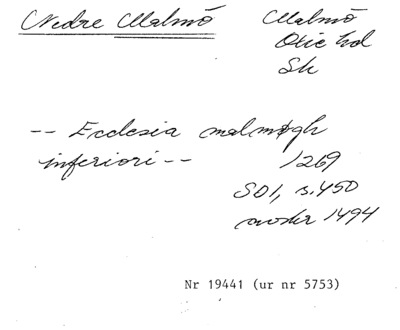 Nedre Malmö
Malmö
Oxie hd
Sk
-- Ecclesia malmøgh
inferiori --
1269
SD 1, s. 450
under 1494
Nr 19441 (ur nr 5753)